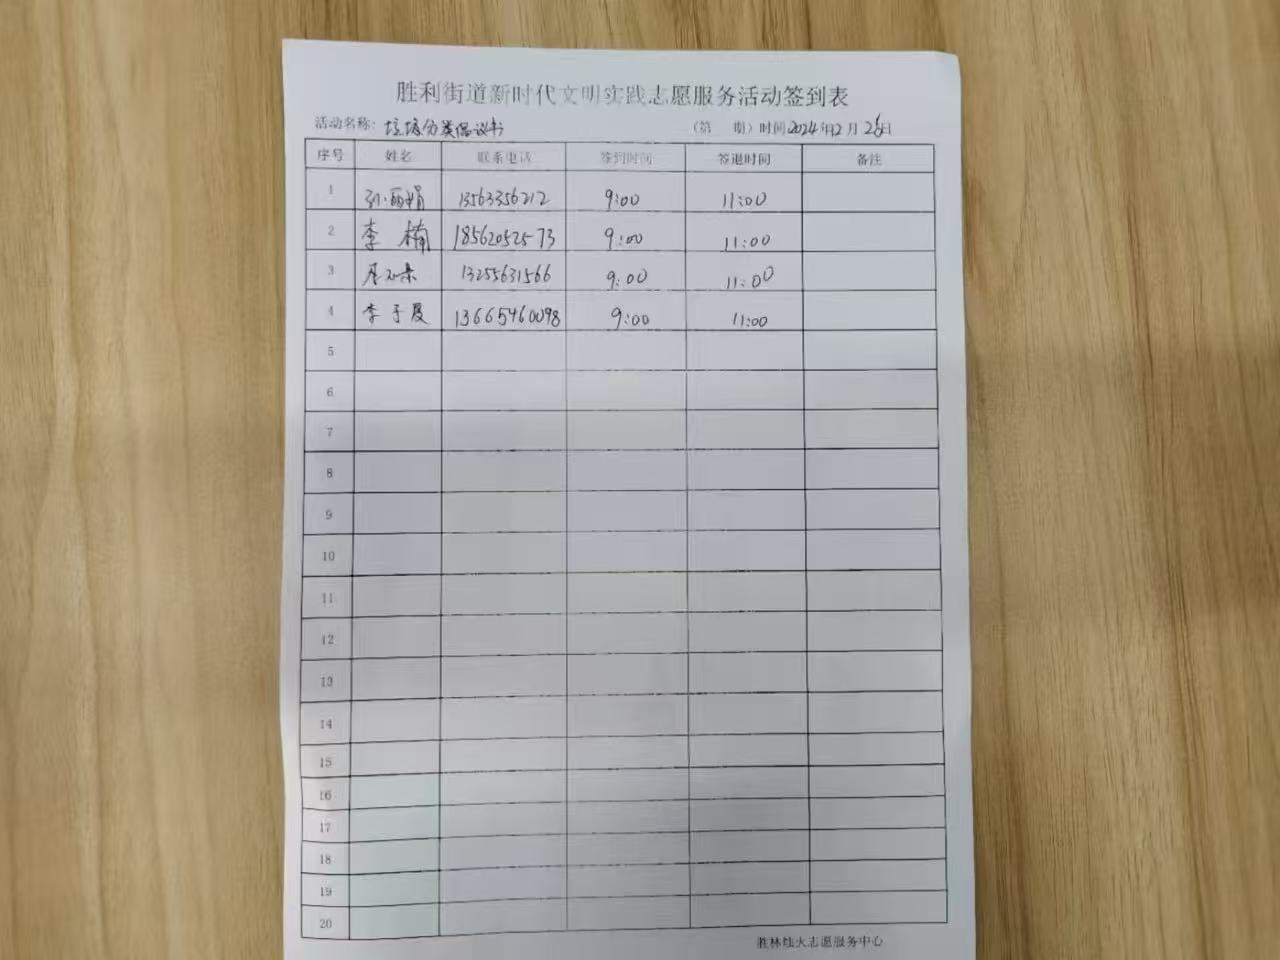 胜利街道新时代文明实践志愿服务活动签到表
活动名称：垃圾分类倡议书 （第 期）时间2024年2月26日
序号 姓名 联系电话 签到时间 签退时间 备注
1 孙丽娟 13563356212 9:00 11:00
2 李楠 18562052573 9:00 11:00
3 13255631566 9:00 11:00
4 李子夏 13665460098 9:00 11:00
5
6
7
8
9
10
11
12
13
14
15
16
17
18
19
20
胜林灿火志愿服务中心